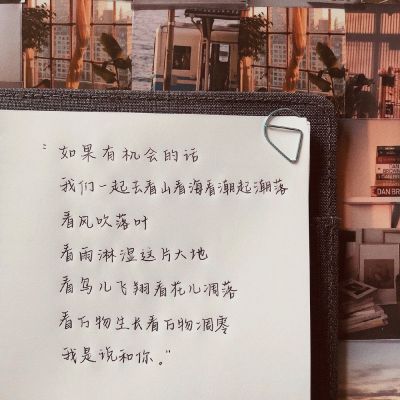 “如果有机会的话
我们一起去看山看海看潮起潮落
看风吹落叶
看雨淋湿这片大地
看鸟儿飞翔看花儿凋落
看万物生长看万物凋零
我是说和你。”
DAN BROWN
DAN BRO